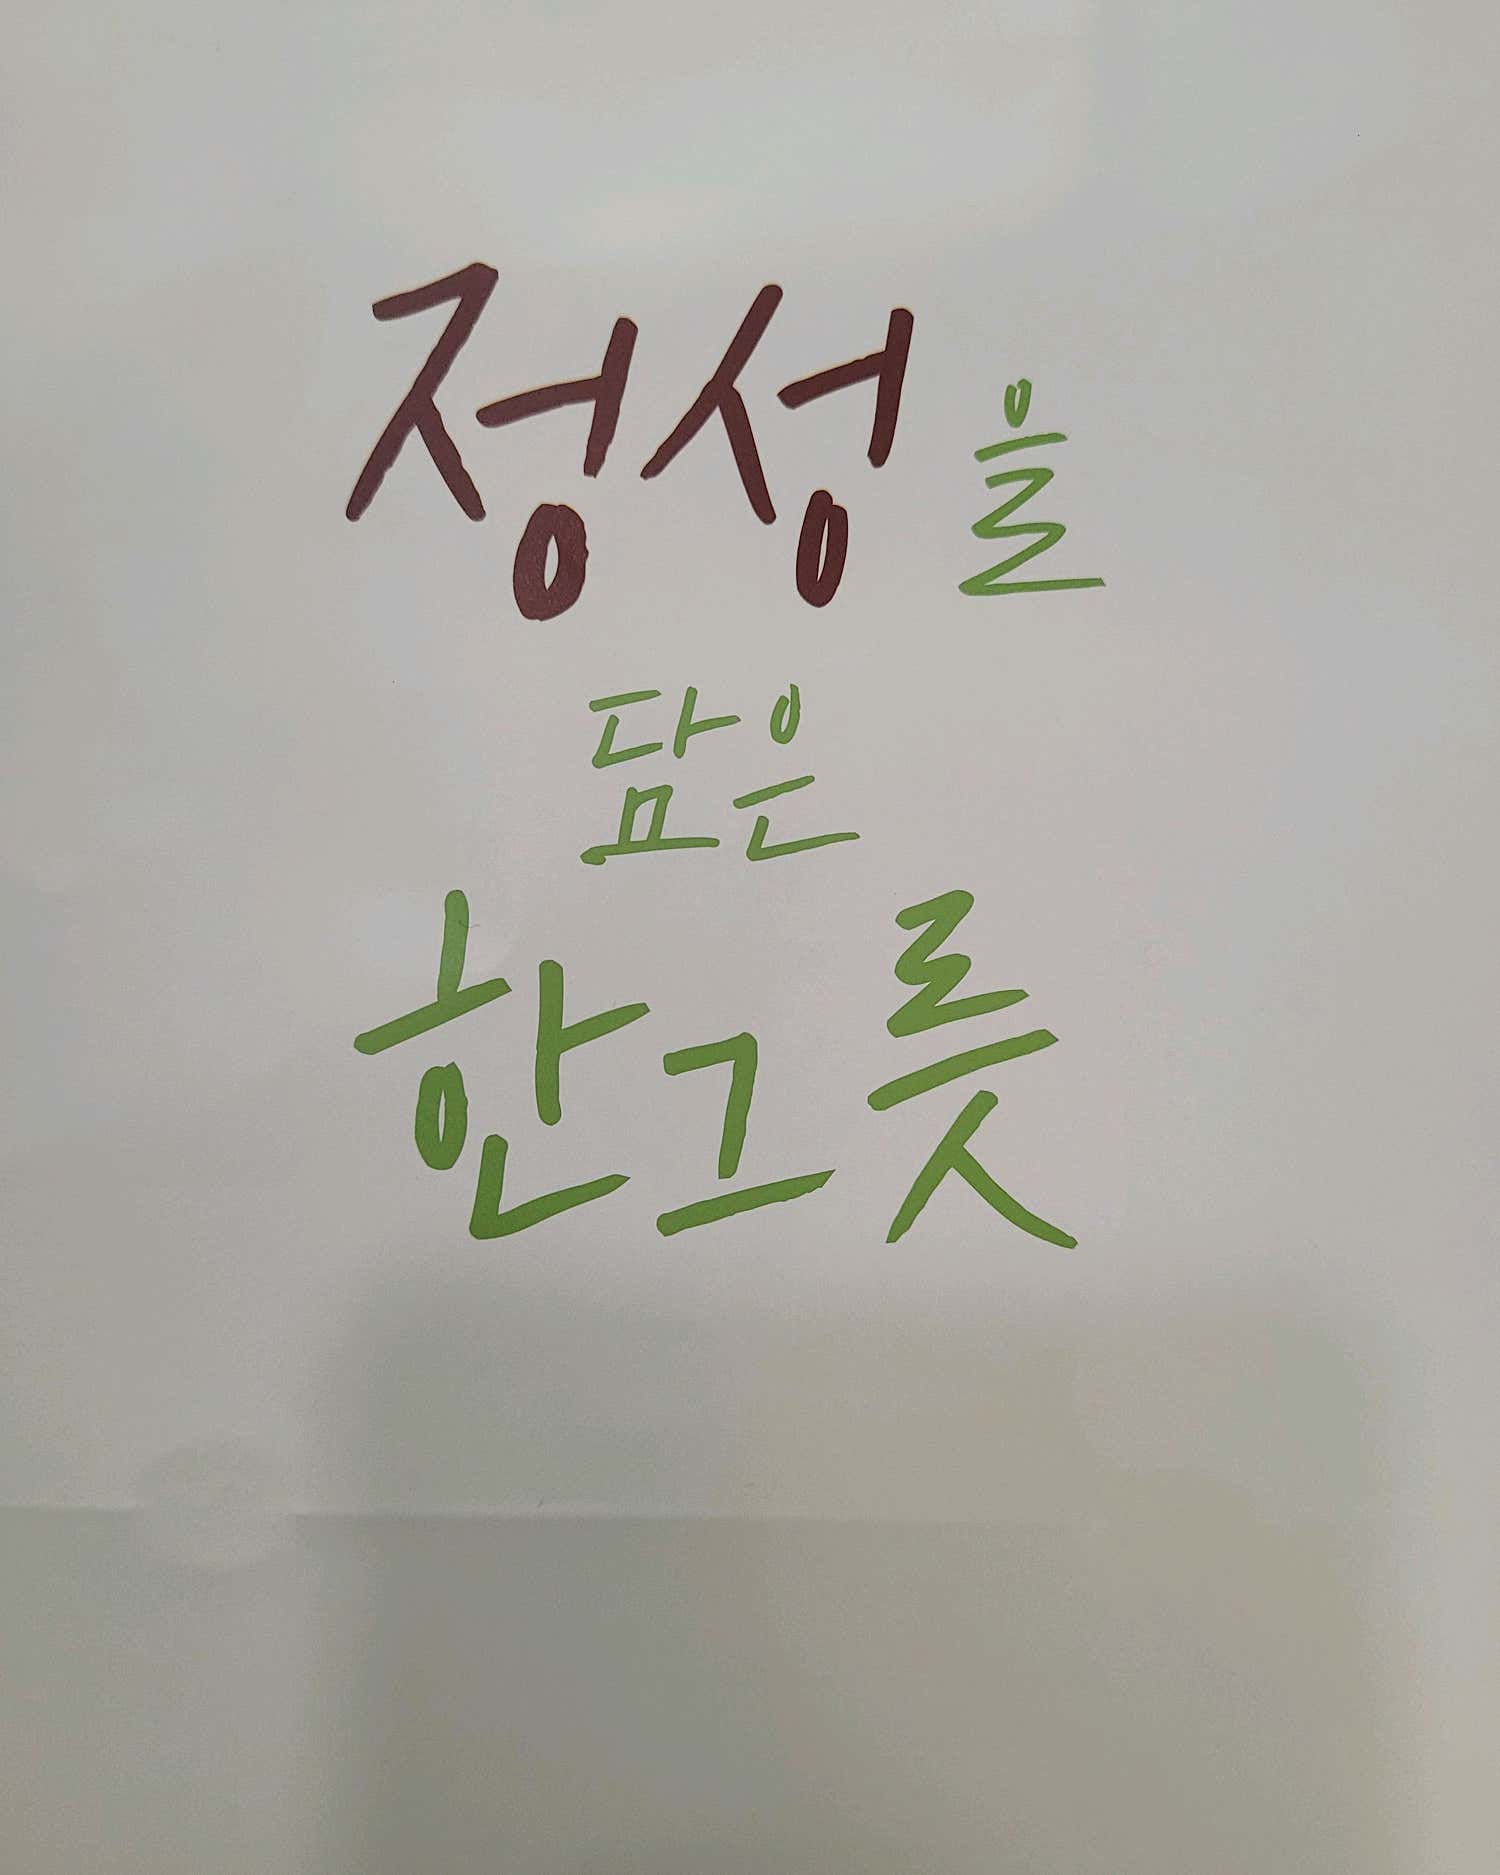 정성을
담은
한그릇